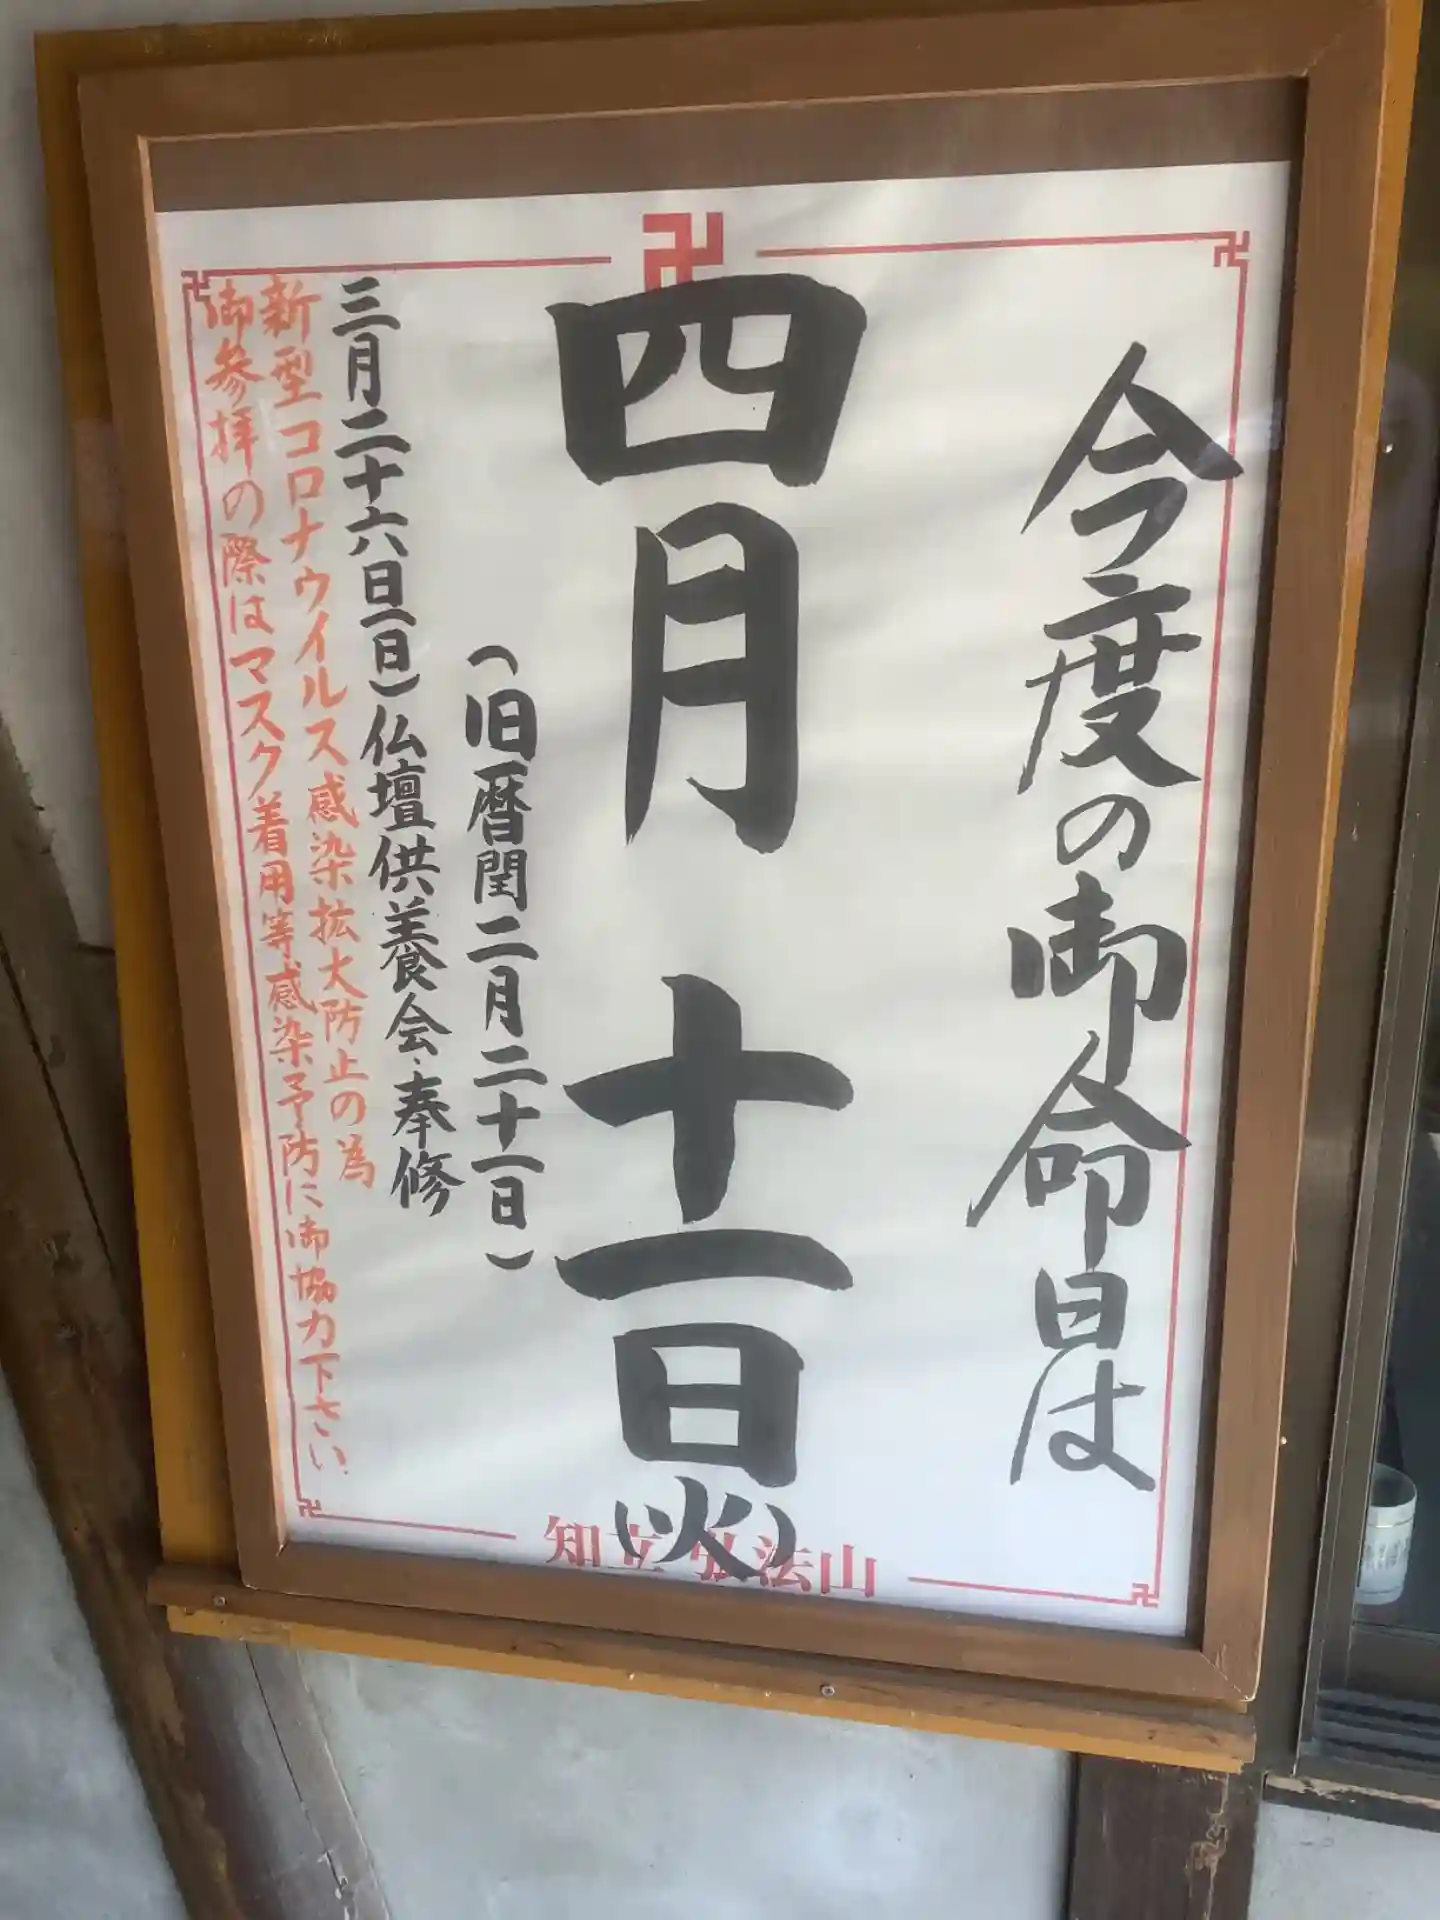 今度の御命日は
四月十一日(火)
(旧暦閏二月二十一日)
三月二十六日(日)仏壇供養会・奉修
新型コロナウイルス感染拡大防止の為
御参拝の際はマスク着用等感染予防に御協力下さい.
知立弘法山